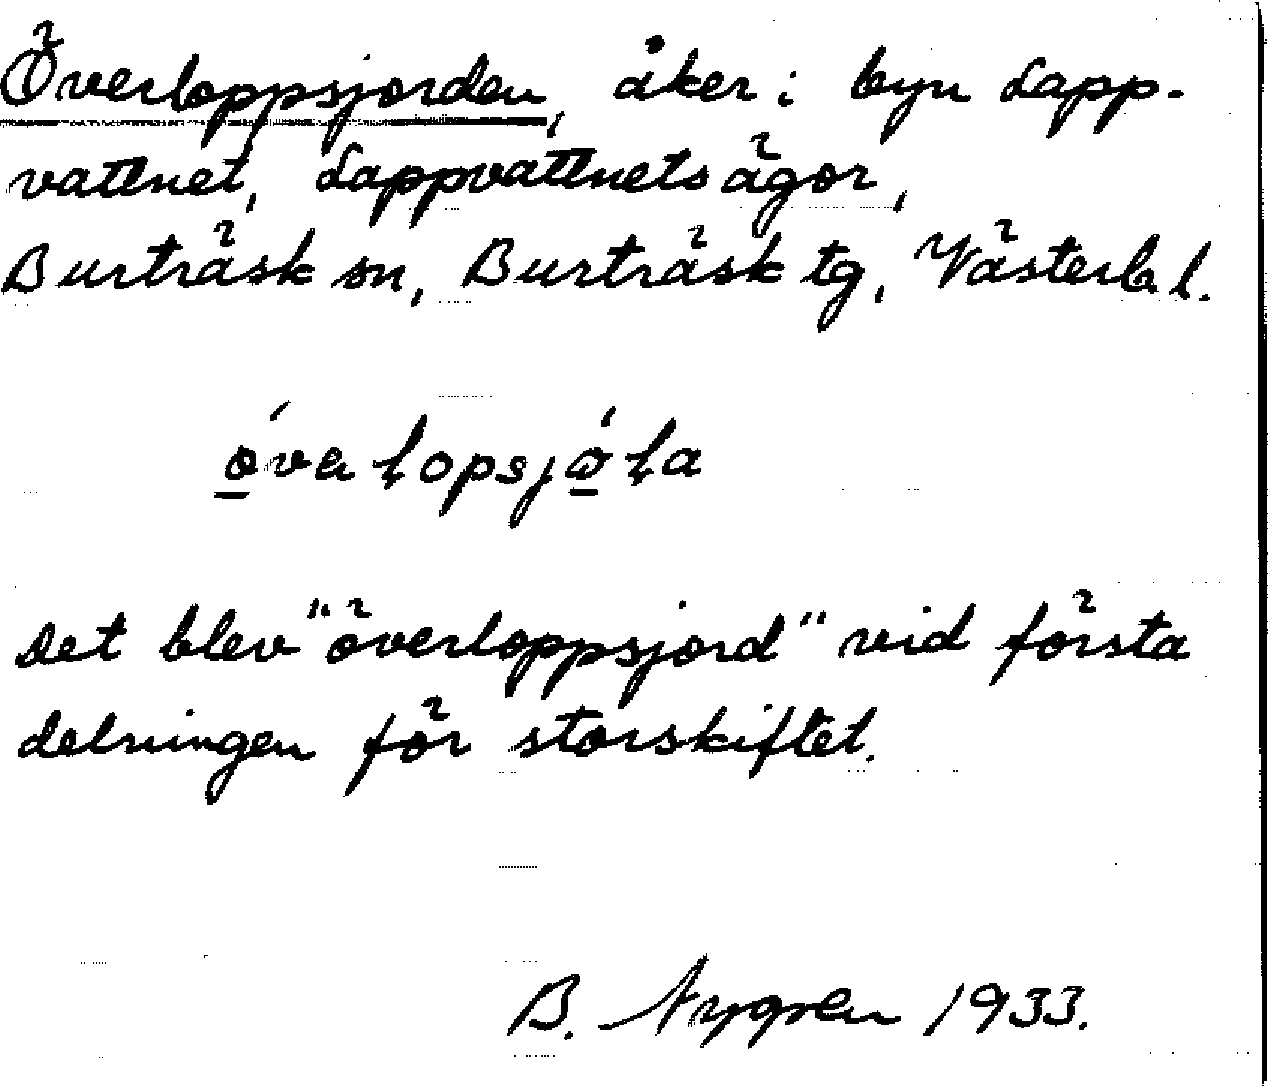 Överloppsjorden, åker i byn Lapp-
vattnet, Lappvattnets ägor,
Burträsk sn, Burträsk tg, Västerb. l.
Det blev "överloppsjord" vid första
delningen för storskiftet.
B. Nygren 1933.